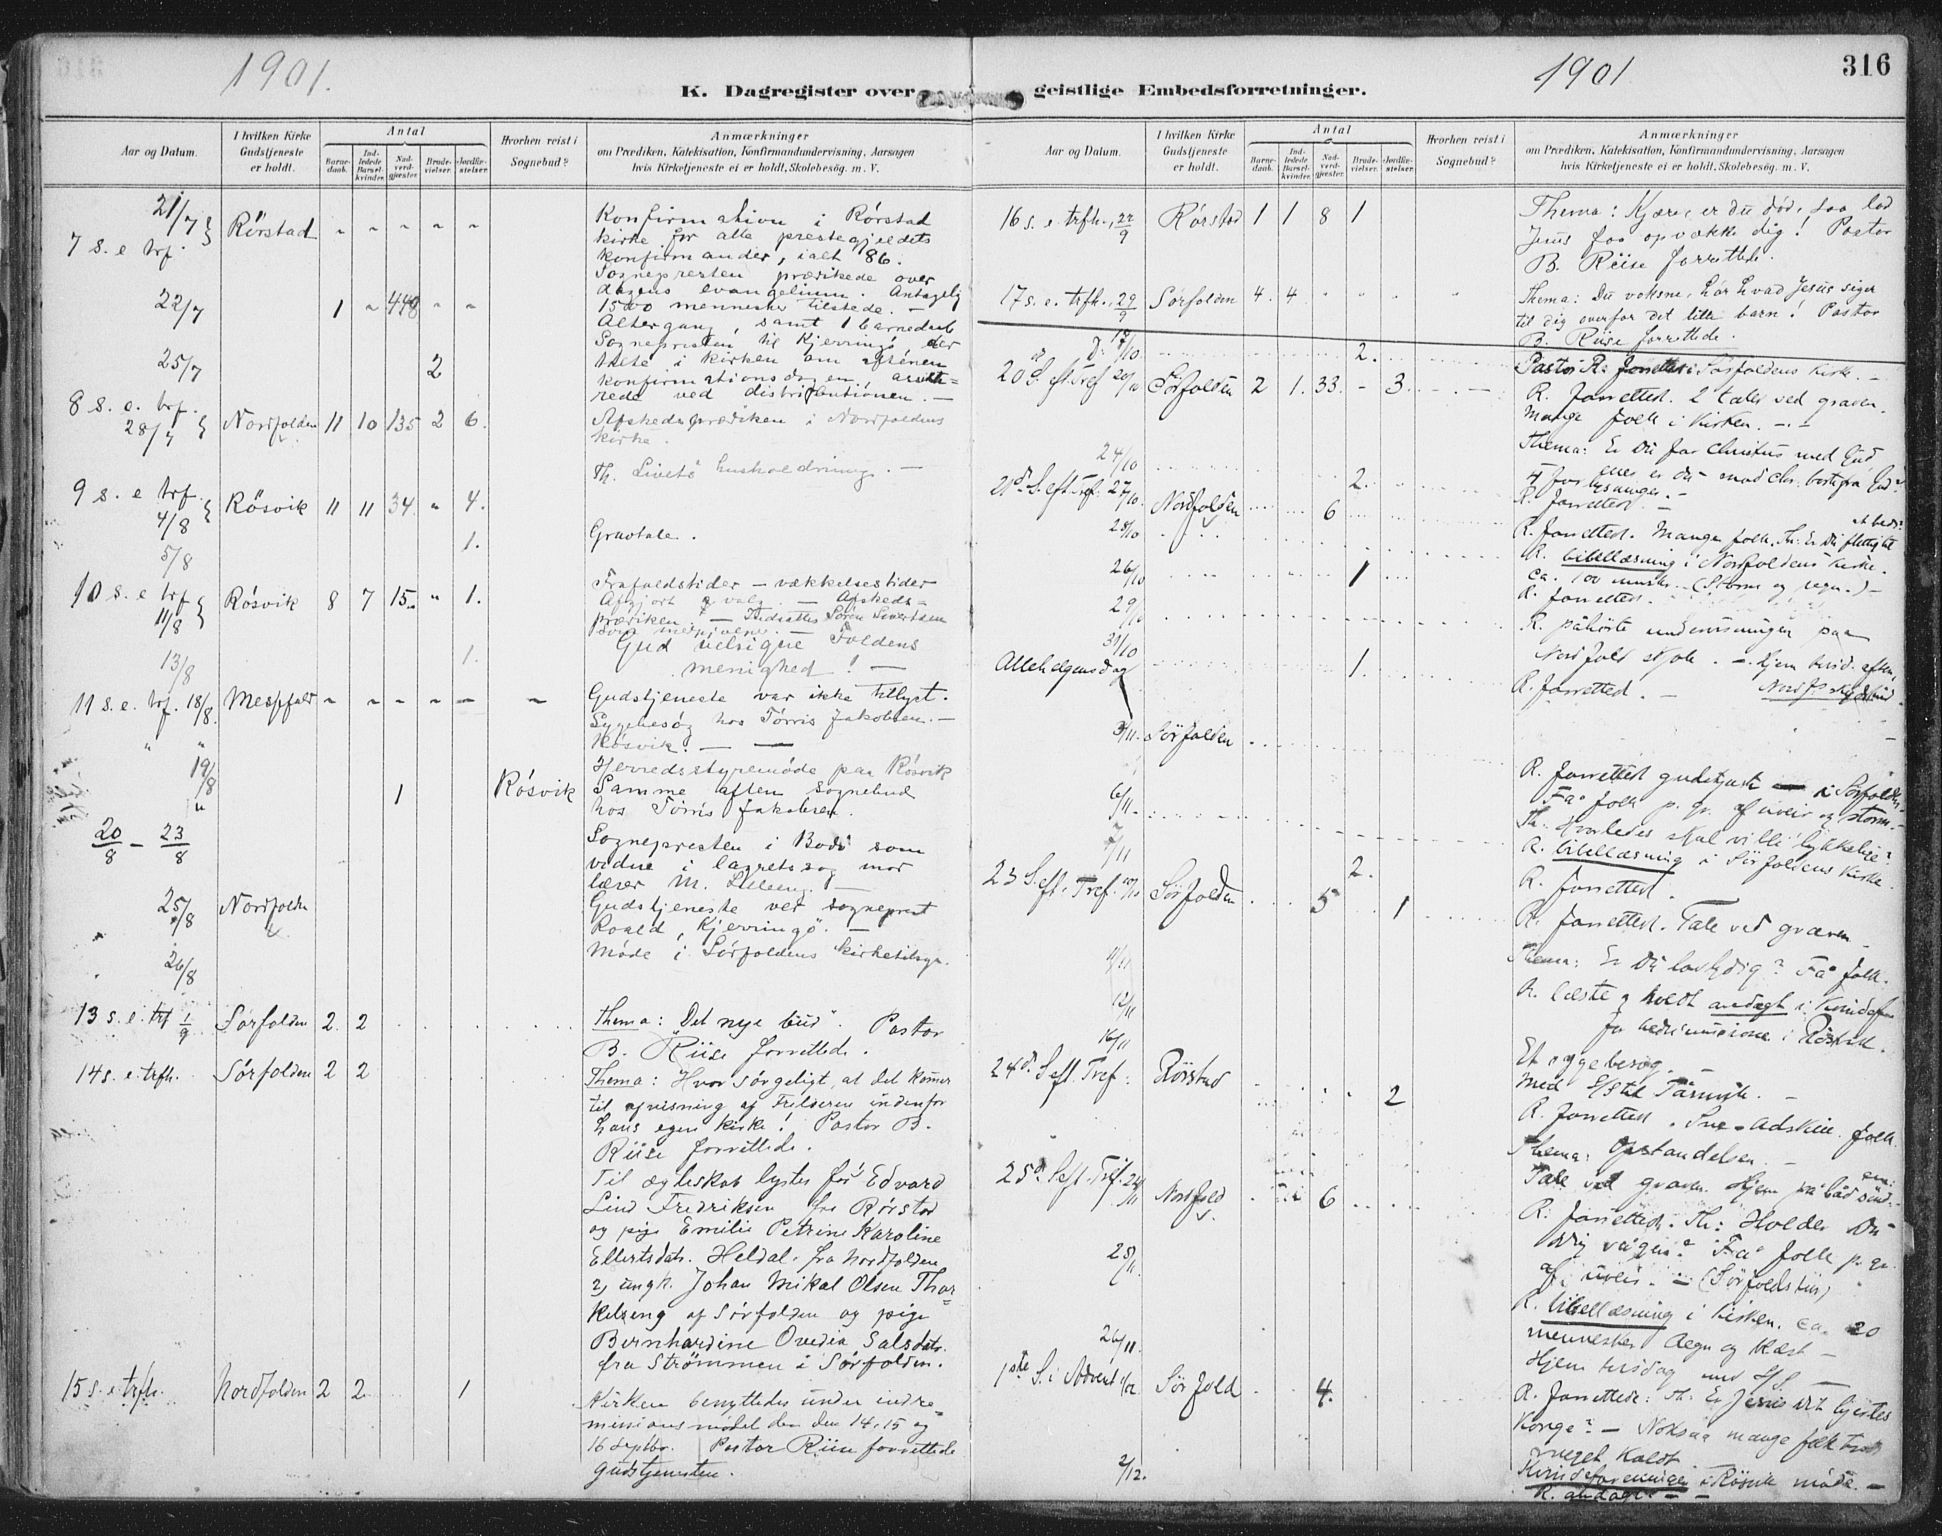 1901.
K. Dagregister over
Aar og Datum.
I hvilken Kirke Gudstjeneste er holdt.
Antal
Barnedaab.
Indledede Barselkvinder.
Nadverdgjester.
Brudevielser.
Jordfæstelser.
Hvorhen reist i Sognebud?
Anmærkninger
om Prædiken, Katekisation, Konfirmandundervisning, Aarsagen
hvis Kirketjeneste ei er holdt, Skolebesøg. m. V.
21/7
7 s. e trf.
Rörstad
Konfirmation i Rörstad
kirke for alle prestegjeldets
konfirmander, ialt 86.
Sognepresten prædikede over
dagens evangelium. Antagelig
1500 mennesker tilstede. —
22/7
1 " 448 " "
Altergang, samt 1 barnedaab
25/7
2
Sognepresten til Kjerringö, der
talte i kirken om aftenen
konfirmationsdagen, assiste=
rede ved distributionen. —
8 s. e. trf.
28/7
Nordfolden 11 10 135 2 6.
Afskedsprædiken i Nordfoldens
kirke.
Th. Livets husholdning. —
9 s. e trf.
4/8
Rösvik 11 11 34 " 4.
5/8
1.
Gravtale.
10 s. e trf
11/8
Rösvik 8 7 15 " 1.
Frafaldstider — vækkelsestider
— Afskeds=
prædiken. —
Gud velsigne Foldens
menighed! —
13/8
1.
11 s. e. trf. 18/8.
Gudstjeneste var ikke tillyst.
Sygebesøg hos Törris Jakobsen. —
Rösvik. —
19/8
Herredsstyremöde paa Rösvik
"
1
Rösvik
Samme aften sognebud
hos Törris Jakobsen.
20/8 — 23/8
Sognepresten i Bodö som
vidne i lagretssag mod
lærer M.
25/8
Nordfolden
Gudstjeneste ved sogneprest
Roald, Kjerringö. —
26/8
Möde i Sörfoldens kirketilsyn.
13 s. e. trf 1/9
Sörfolden 2 2
Thema: Det nye bud". Pastor
B. Riise forrettede.
14 s. e. trfh.
Sörfolden 2 2
Thema: Hvor sörgeligt, at det kommer
til afvisning af Frelseren indenfor
hans egen kirke! Pastor B.
Riise forrettede.
Til ægteskab lystes for Edvard
Lind Fredriksen fra Rörstad
og pige Emilie Petrine Karoline
Ellertsdatr. Heldal fra Nordfolden
2) ungk. Johan Mikal Olsen Thor=
kelseng af Sörfolden og pige
Bernhardine Ovedia Salsdatr.
fra Strömmen i Sörfolden.
15 s. e. trfh.
Nordfolden 2 2 1
Kirken benyttedes under indre=
missionsmödet den 14, 15 og
16 septbr. Pastor Riise forrettede
gudstjenesten.
1901
316
geistlige Embedsforretninger.
Aar og Datum.
I hvilken Kirke Gudstjeneste er holdt.
Antal
Barnedaab.
Indledede Barselkvinder.
Nadverdgjester.
Brudevielser.
Jordfæstelser.
Hvorhen reist i Sognebud?
Anmærkninger
om Prædiken, Katekisation, Konfirmandundervisning, Aarsagen
hvis Kirketjeneste ei er holdt, Skolebesøg. m. V.
16 s. e. trfh., 22/9
Rörstad 1 1 8 1
Thema: Kjære, er du död, saa lad
Jesus faa opvække dig! Pastor
B. Riise forrettede.
17 s. e. trfh., 29/9
Sörfolden 4 4
Thema: Du voksne, hör hvad Jesus siger
til dig overfor det lille barn! Pastor
B. Riise forrettede.
2.
Pastor R. forrettet i Sörfoldens Kirke. —
20 S. eft. Tref 20/10
Sörfolden 2 1. 33. — 3.
R. forrettet. 2 taler ved graven.
Mange folk i Kirken. —
Thema: Er Du for Christus med Gud
24/10
2.
R. forrettet. —
21d S. eft. Tref. 27/10.
Nordfolden 6
R. forrettet. Mange folk. Th: Er Du flittig til
at bede?
28/10
R. bibellæsning i Nordfoldens kirke.
ca. 100 mnsk. (Storm og regn.) —
1
R. forrettet.
29/10
R. påhörte undervisningen paa
Nordfold skole. —
31/10
Allehelgensdag
1.
R. forrettet. —
3/11.
Sörfolden
R. forrettet gudstjeneste i Sörfolden
Få folk p. gr. af uveir og storm. —
Th: Hvorledes skal vi bli lykkelige?
6/11.
R. bibellæsning i Sörfoldens Kirke.
7/11
2.
R. forrettet.
23 S. eft. Tref. 10/11
Sörfolden 5 1
R. forrettet. Tale ved graven —
Thema: Er Du lovlydig? Få folk.
11/11
R. læste & holdt andagt i Kvindefor
for hedningemissionen i Rösvik.
12/11
Et sygebesög. —
16/11
Med
24d S eft. Tref:
Rörstad
2
R. forrettet. folk
Thema: Opstandelsen. —
Tale ved graven. Hjem på båd
25d. S eft. Tref. 24/11
Nordfold 6
R. forrettet. Th: Holder Du
Dig vågen? Få folk p. gr.
af uveir. — (Sörfoldstur)
25/11.
R. bibellæsning i kirken. ca. 20
mennesker Regn og blæst —
26/11.
Hjem tirsdag
1ste S. i Advent 1/12
Sörfold 4.
R. forrettede: Th: Er Jesus dit hjertes
Konge? — Noksaa mange folk trods
meget koldt.
2/12.
Kvindeforeningen i Rösvik möde. —
R. andagt. —